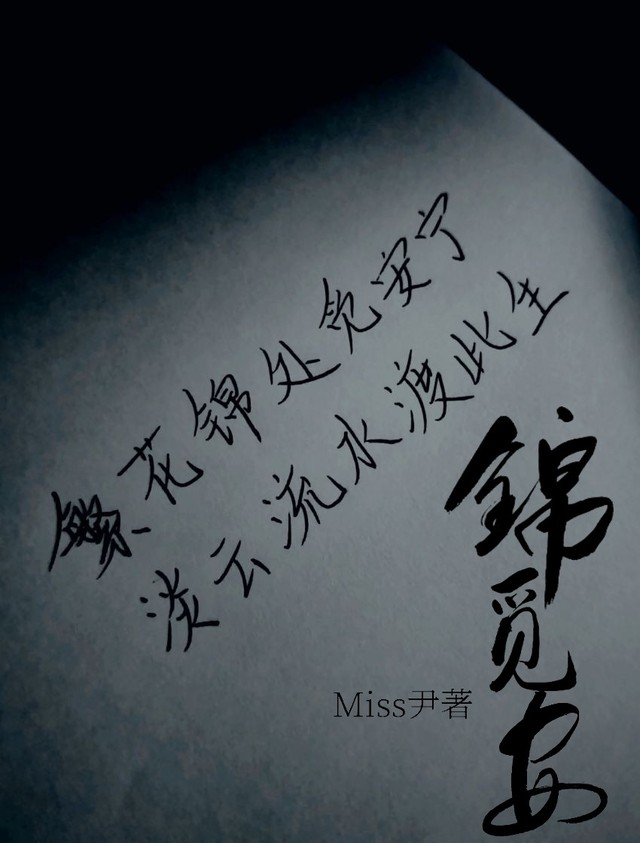 繁花锦处觅安宁
淡云流水渡此生
锦觅安
Miss尹著